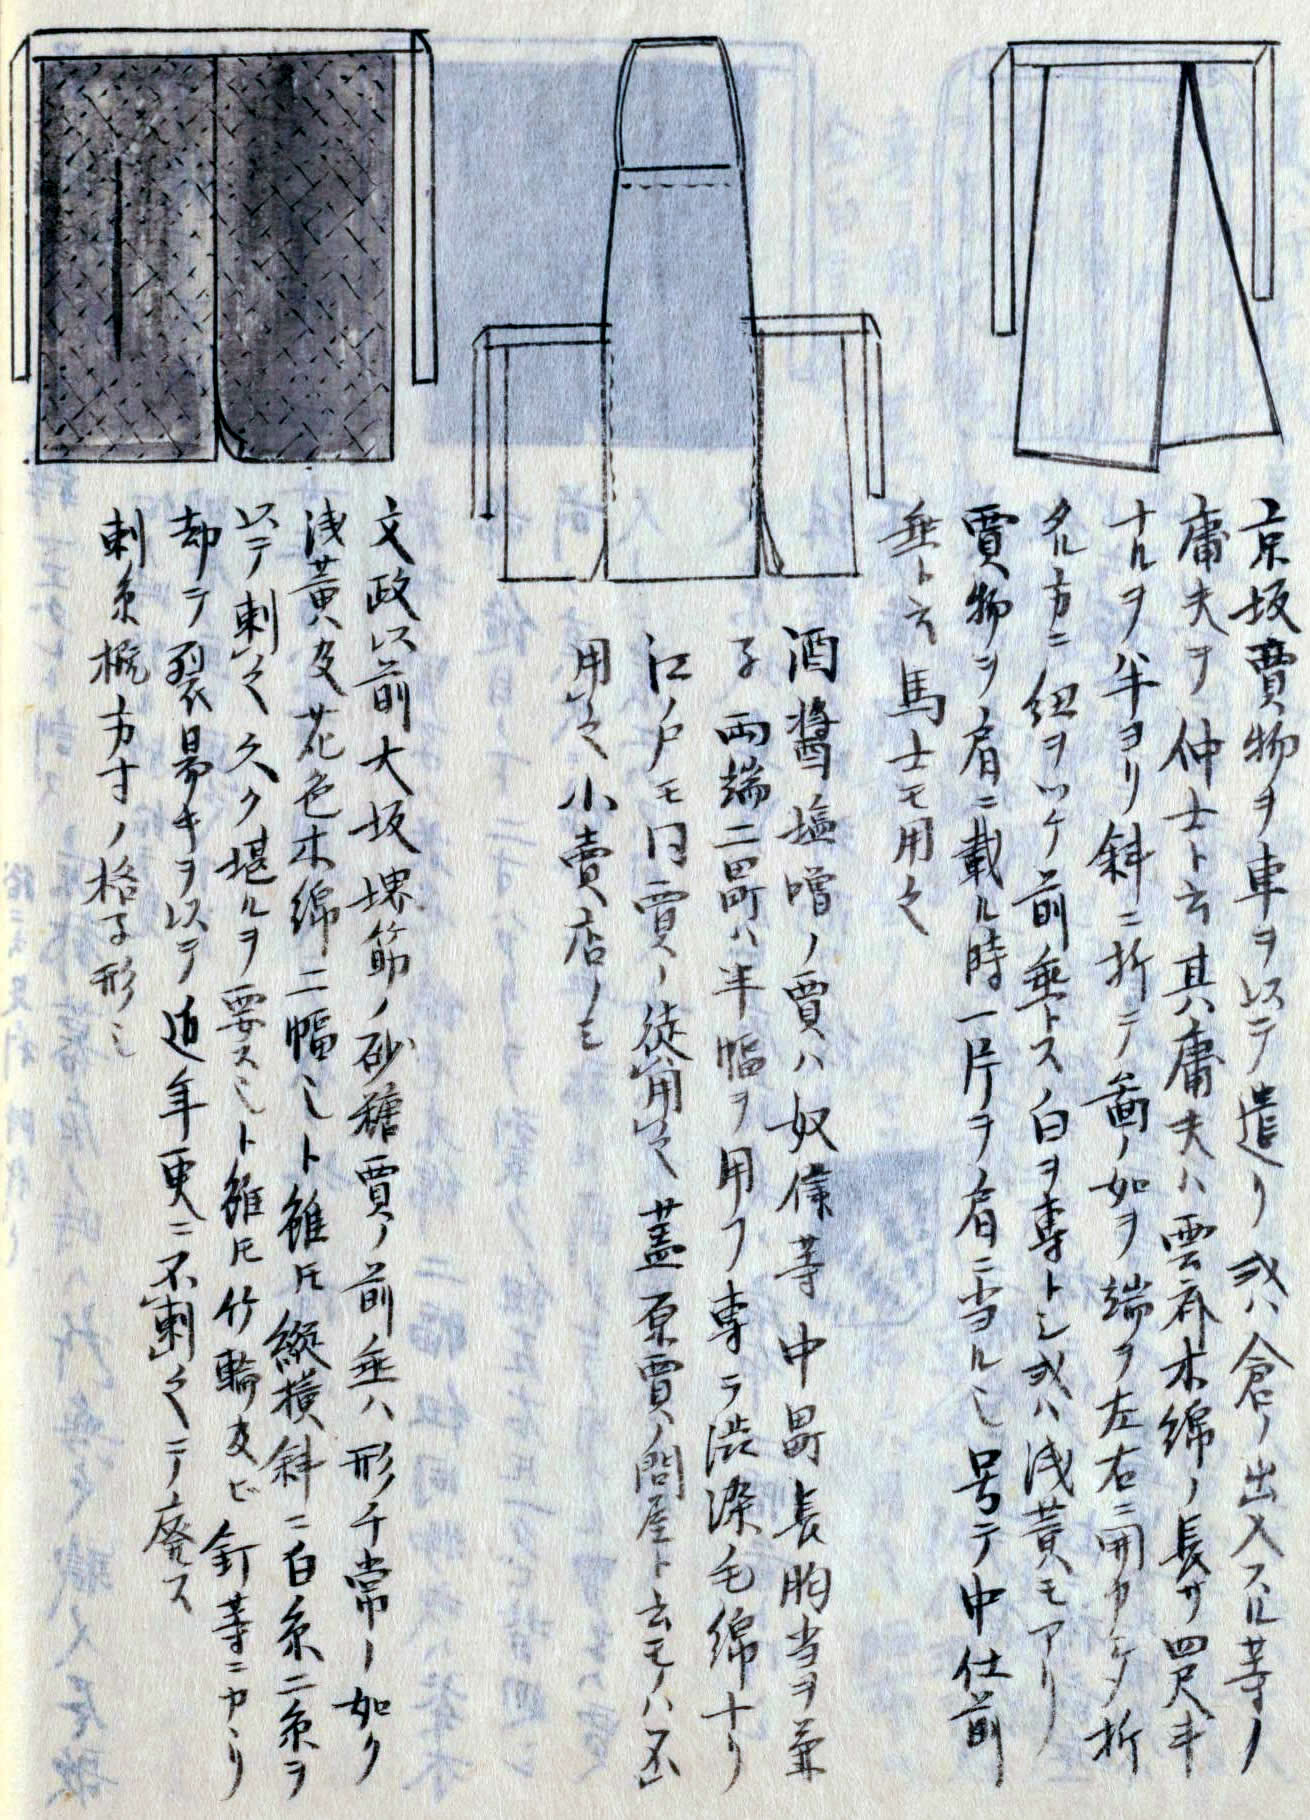 京坂賣物ヲ車ヲ以テ遣リ或ハ倉ノ出入スル等ノ
庸夫ヲ仲士ト云其庸夫ハ雲斎木綿ノ長サ四尺半
ナルヲ半ヨリ斜ニ折テ畵ノ如ヲ端ヲ左右ニ開カケタ折
タル方ニ紐ヲツケ前垂トス白ヲ専トシ或ハ浅黄モアリ
賣物ヲ肩ニ載ル時一片ヲ肩ニ当ル也号テ中仕前
垂ト云馬士モ用之
酒醤塩噌ノ賈ハ奴僕等中畧長胸当ヲ兼
子両端二畧ハ半幅ヲ用フ専ラ渋染毛綿ナリ
江ノ戸モ同賈ノ徒用之蓋原賈ノ問屋ト云モノハ不
用之小賣店ノミ
文政以前大坂堺筋ノ砂糖賈ノ前垂ハ形チ常ノ如ク
浅黄及花色木綿二幅也ト雖圧縦横斜ニ白糸二糸ヲ
以テ刺之久ク堪ルヲ要ス也ト雖圧竹輪及ビ釘等ニカヽリ
却テ裂易キヲ以テ近年更ニ不刺之テ廃ス
刺糸概方寸ノ格子形也